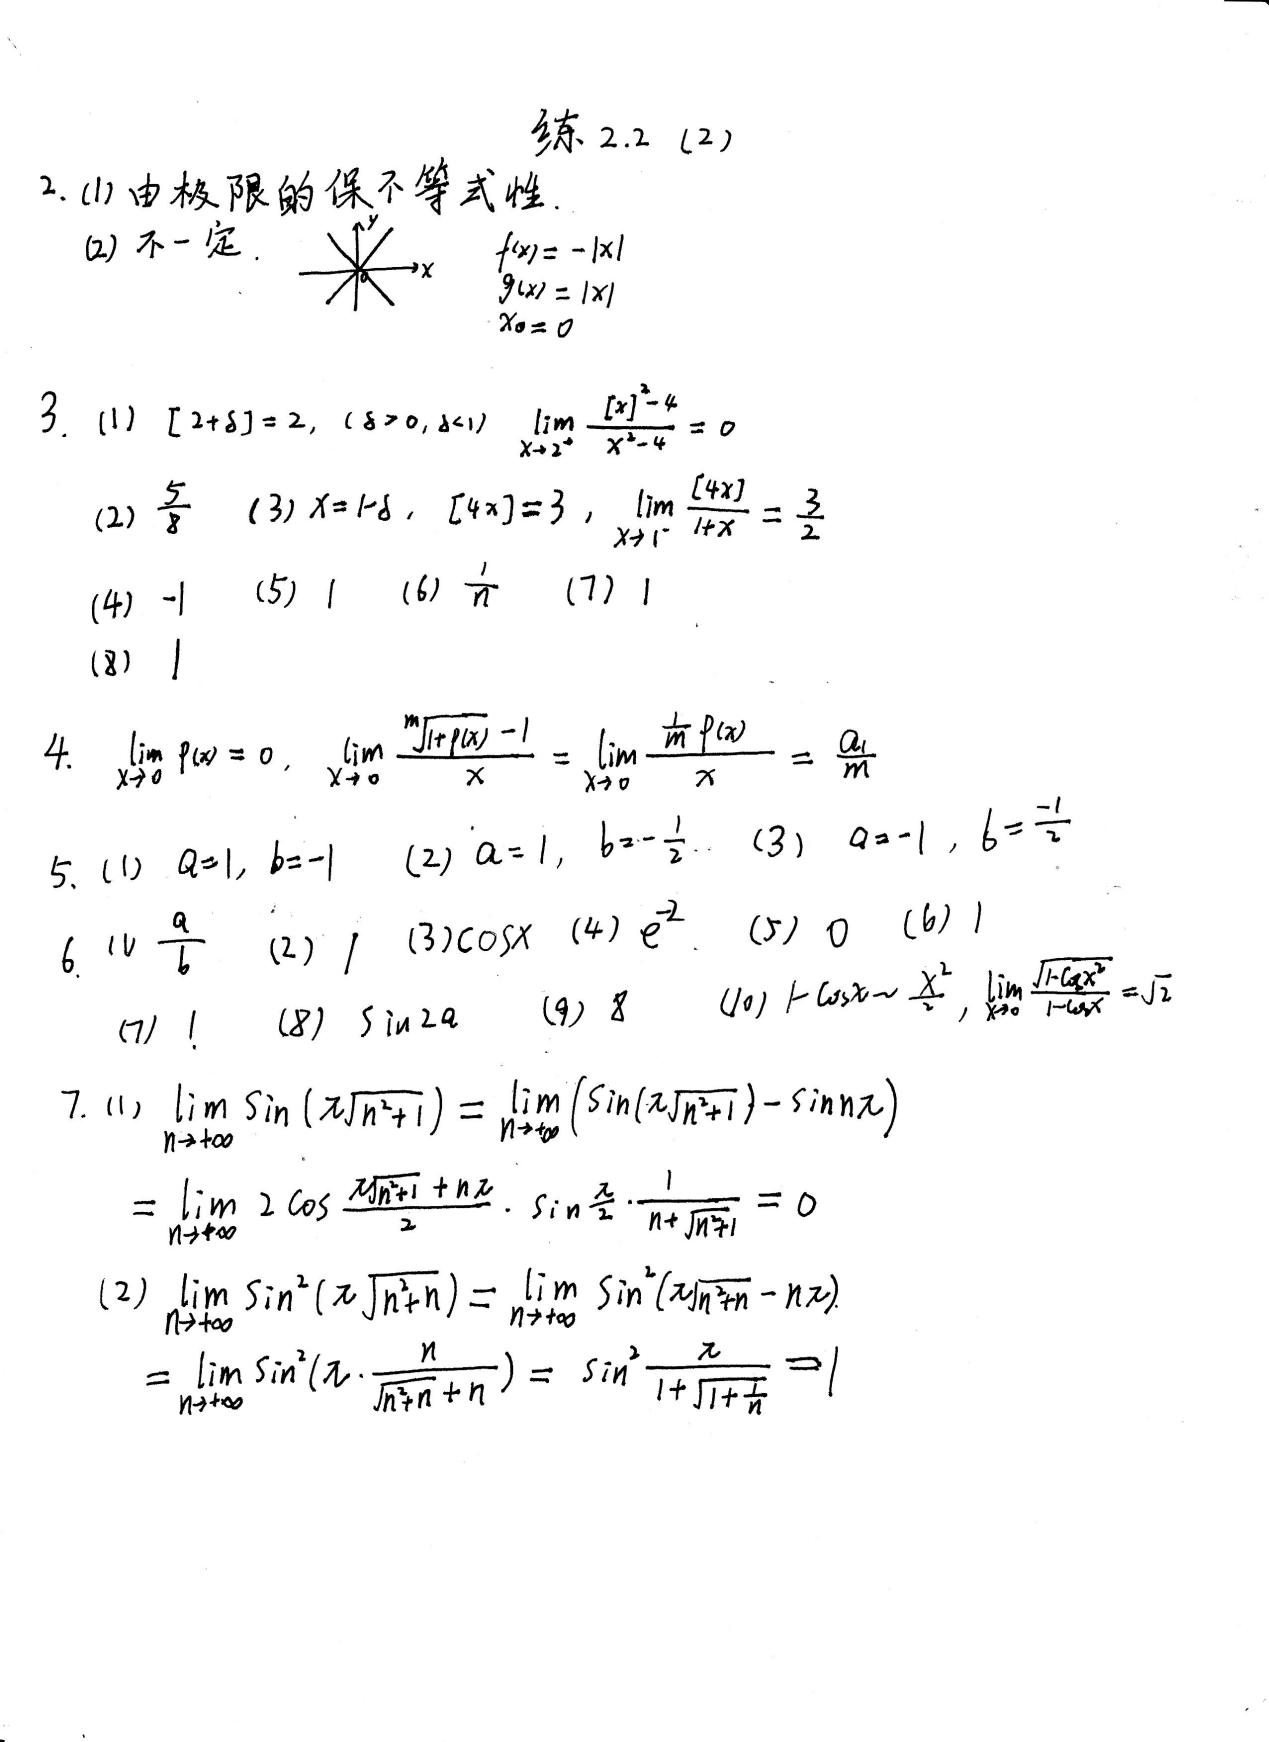 练 2.2 (2)
2. (1) 由极限的保不等式性.
(2) 不一定. y x 0 f(x) = -|x|
g(x) = |x|
x₀ = 0
3. (1) [2+δ] = 2, (δ>0, δ<1) lim_{x→2⁺} ([x]²-4)/(x²-4) = 0
(2) 5/8 (3) x=1-δ, [4x]=3, lim_{x→1⁻} [4x]/(1+x) = 3/2
(4) -1 (5) 1 (6) 1/n (7) 1
(8) 1
4. lim_{x→0} P(x) = 0, lim_{x→0} (ᵐ√(1+P(x)) -1)/x = lim_{x→0} (1/m P(x))/x = a₁/m
5. (1) a=1, b=-1 (2) a=1, b=-1/2 (3) a=-1, b=-1/2
6. (1) a/b (2) 1 (3) cosx (4) e⁻² (5) 0 (6) 1
(7) 1 (8) sin2a (9) 8 (10) 1-cosx ~ x²/2, lim_{x→0} √(1-cosx²)/(1-cosx) = √2
7. (1) lim_{n→+∞} sin(π√(n²+1)) = lim_{n→+∞} (sin(π√(n²+1)) - sinnπ)
= lim_{n→+∞} 2cos (π√(n²+1) + nπ)/2 · sin π/2 · 1/(n+√(n²+1)) = 0
(2) lim_{n→+∞} sin²(π√(n²+n)) = lim_{n→+∞} sin²(π√(n²+n) - nπ).
= lim_{n→+∞} sin²(π · n/(√(n²+n) + n)) = sin² π/(1+√(1+1/n)) = 1